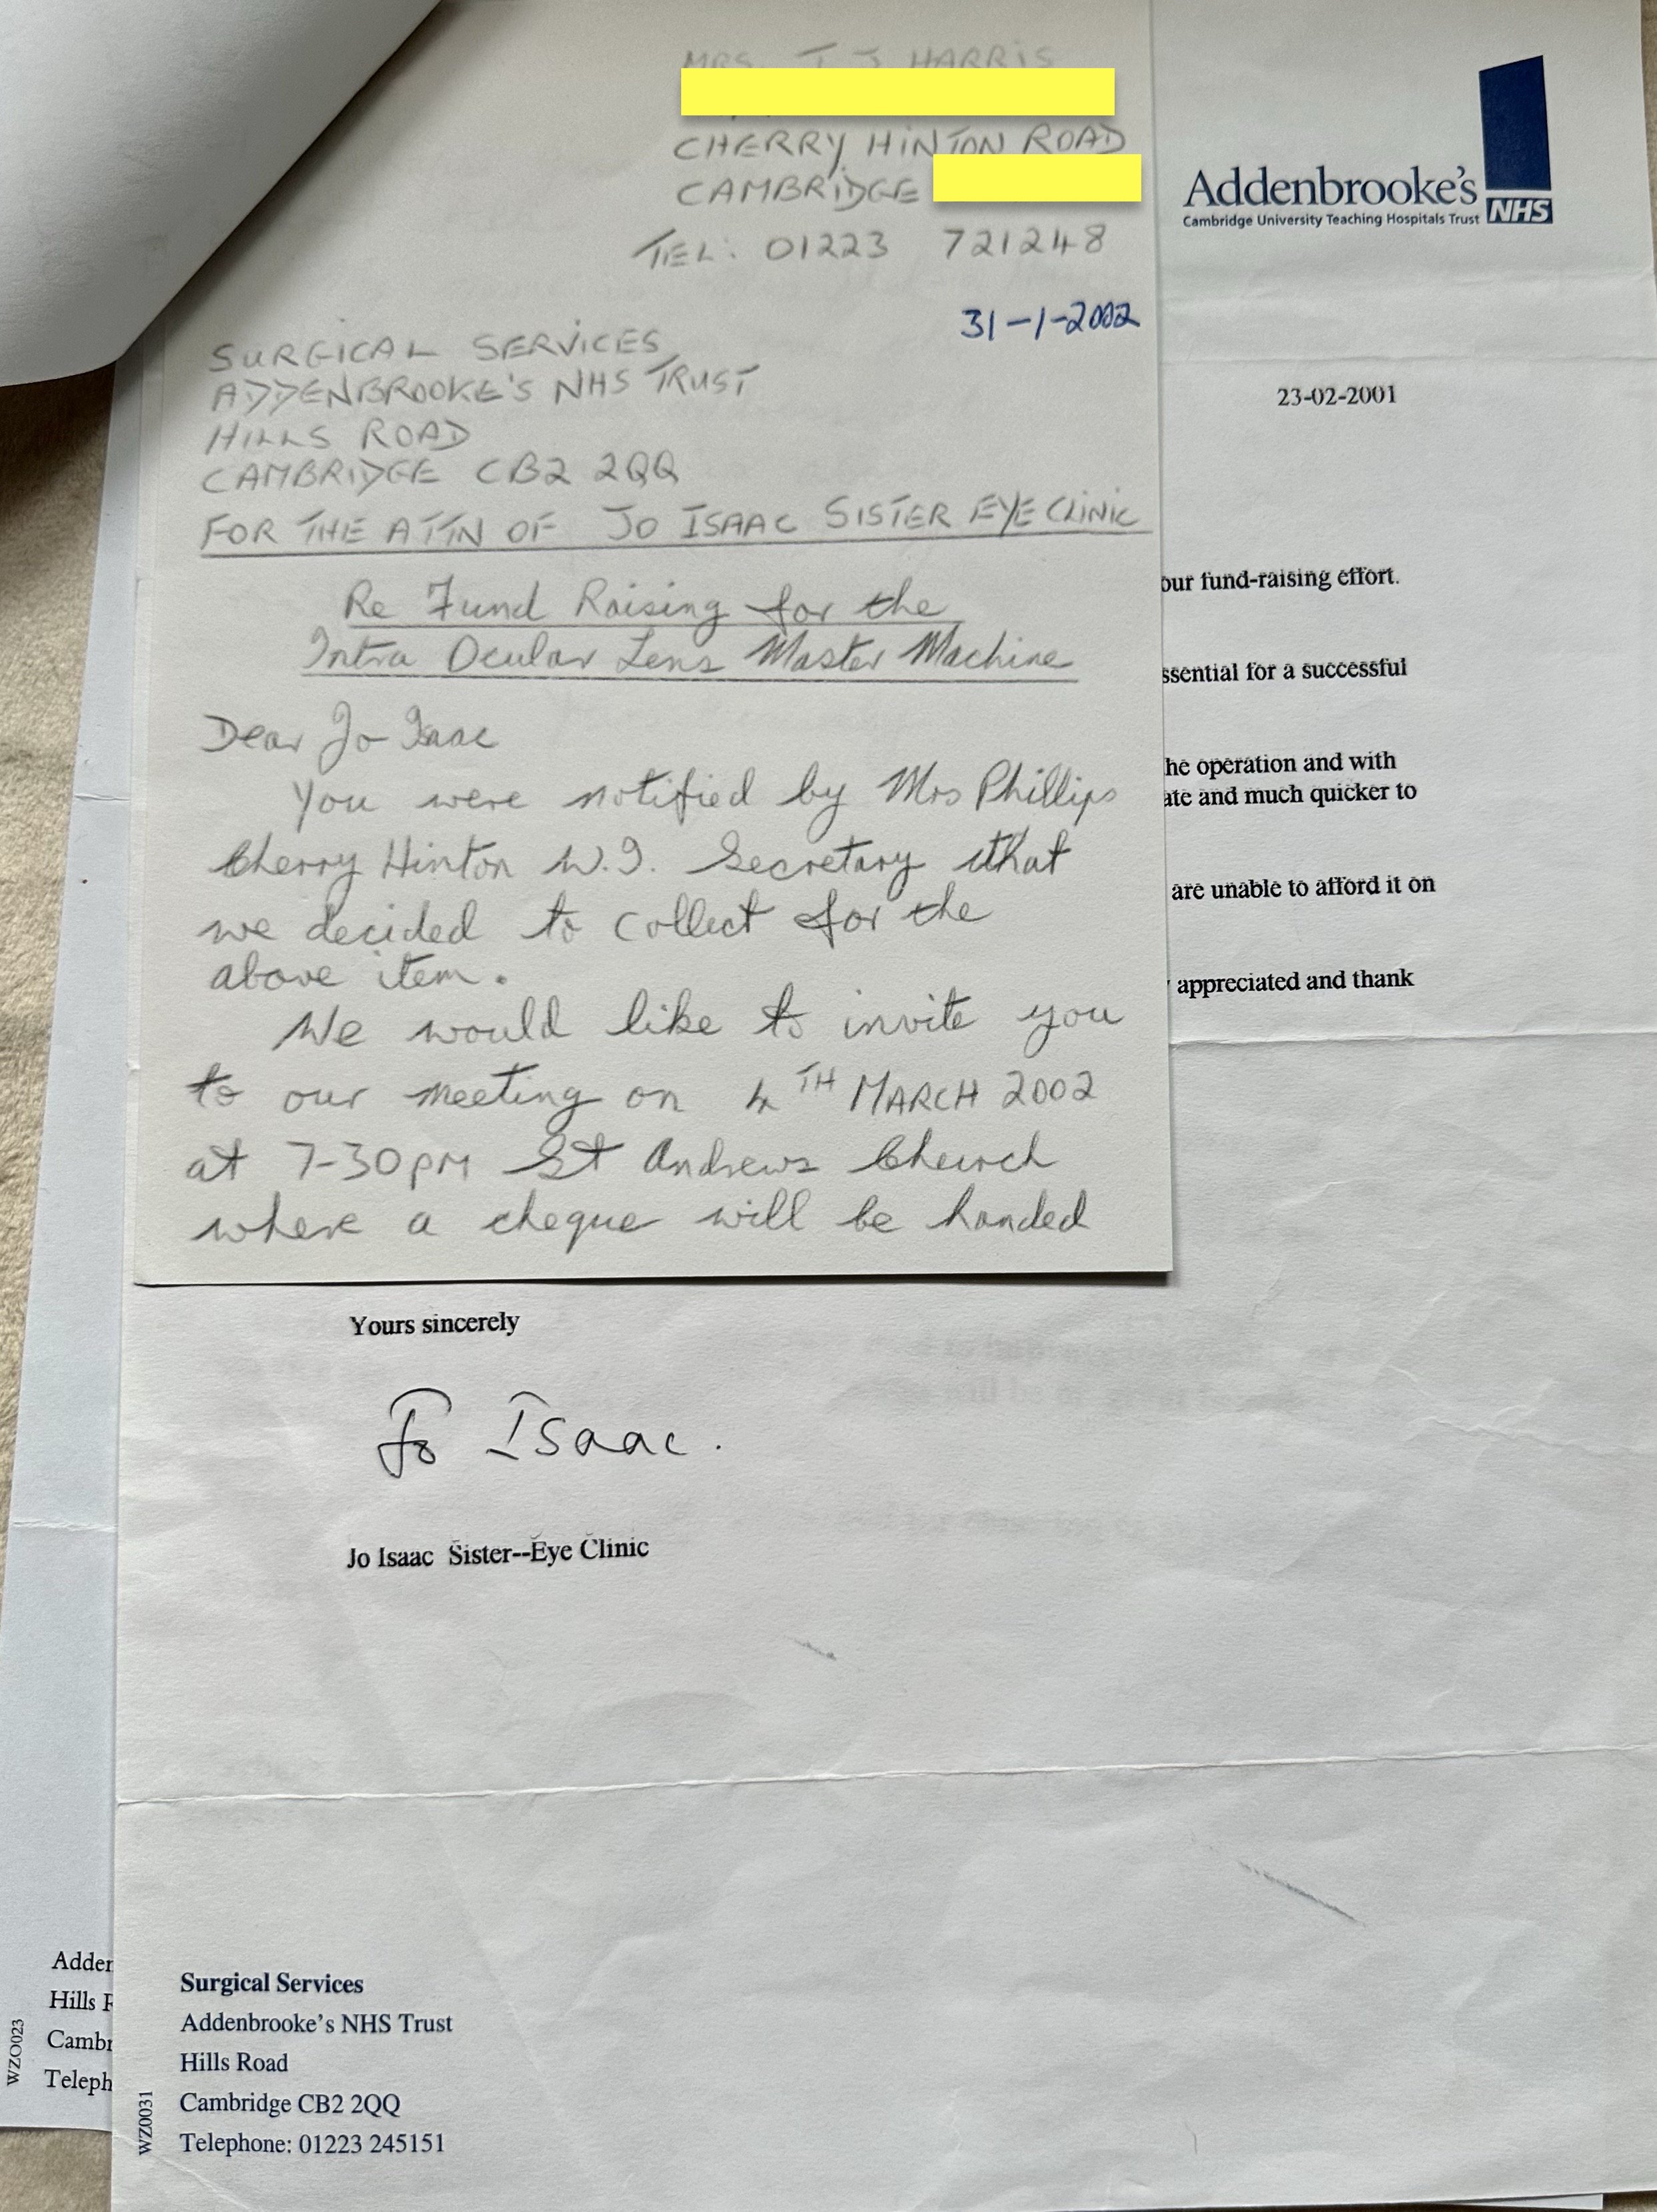 MRS. T J HARRIS
CHERRY HINTON ROAD
CAMBRIDGE
TEL: 01223 721248
31-1-2002
SURGICAL SERVICES
ADDENBROOKE'S NHS TRUST
HILLS ROAD
CAMBRIDGE CB2 2QQ
FOR THE ATTN OF JO ISAAC SISTER EYE CLINIC
Re Fund Raising for the
Intra Ocular Lens Master Machine
Dear Jo Isaac
You were notified by Mrs Phillips
Cherry Hinton W.I. Secretary that
we decided to collect for the
above item.
We would like to invite you
to our meeting on 4TH MARCH 2002
at 7-30PM St Andrews Church
where a cheque will be handed
Addenbrooke's
Cambridge University Teaching Hospitals Trust NHS
23-02-2001
our fund-raising effort.
ssential for a successful
he operation and with
ate and much quicker to
are unable to afford it on
appreciated and thank
Yours sincerely
Jo Isaac.
Jo Isaac Sister--Eye Clinic
Surgical Services
Addenbrooke's NHS Trust
Hills Road
Cambridge CB2 2QQ
Telephone: 01223 245151
WZ0031
Adden
Hills R
Cambr
Teleph
WZO023